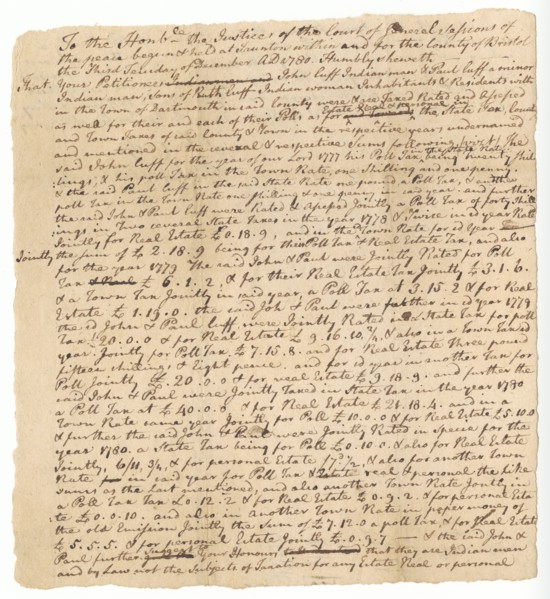 To the Honble the Justices of the Court of General Sessions of
the peace begun & held at Taunton within and for the County of Bristol
the Third Tuesday of December AD 1780. Humbly sheweth
That your Petitioners Indian men John Cuff Indian man & Paul Cuff a minor
Indian man, Sons of Ruth Cuff Indian woman Inhabitants & Residents with
in the Town of Dartmouth in said County were Taxed Rated and Assessed
Estate Real & personal in
as well for their and each of their Polls as for the State Tax, County
and Town Taxes of said County & Town in the respective years undernamed
and mentioned in the several & respective Sums following viz. The
said John Cuff for the year of our Lord 1777 his Poll Tax, the State Rate being twenty Shil
lings, & his poll Tax in the Town Rate, one Shilling and one penny
& the said Paul Cuff in the said State Rate one pound a Poll Tax, & in the
poll Tax in the Town Rate one shilling & one penny said year. and further
the said John & Paul Cuff were Rated & Assessed Jointly a Poll Tax of forty Shill
ings in Two several State Taxes in the year 1778 & Twice in sd year Rated
Jointly for Real Estate £0.18.9, and in the Town Rate for sd Year
Jointly the sum of £2.18.9 being for their Poll Tax & Real Estate Tax, and also
for the year 1779 The said John & Paul were Jointly Rated for Poll
Tax £6.1.2, & for their Real Estate Tax Jointly £3.1.6.
& a Town Tax Jointly in said year, a Poll Tax at 3.15.2 & for Real
Estate £1.19.0. the said John & Paul were further in sd year 1779
the sd John & Paul Cuff, were Jointly Rated in State Tax for poll
Tax 20.0.0 & for Real Estate £9.16.10 2/4, & also in a Town Tax sd
year Jointly for Poll Tax £7.15.8. and for Real Estate Three pound
fifteen shillings & Eight pence. and for sd year in another Tax for
Poll Jointly £20.0.0 & for real Estate £9.18.9. and further the
said John & Paul were Jointly Taxed in State Tax in the year 1780
a Poll Tax at £40.0.0 & for Real Estate £21.18.4. and in a
Town Rate same year Jointly for Poll £10.0.0 & for Real Estate £5.10.0
& further the said John & Paul were Jointly Rated in Specie for the
year 1780. a State Tax being for Poll £0.10.0 & also for Real Estate
Jointly, 6/11, 3/4, & for personal Estate 1/2, & also for another Town
Rate for in said year for Poll Tax & Estate real & personal the like
sums as the last mentioned, and also another Town Rate Jointly in
a Poll Tax Tax £0.12.2 & for Real Estate £0.9.2. & for personal Esta
te £0.0.10. and also in another Town Rate in paper money of
the old Emission Jointly the Sum of £7.12.0 a poll Tax, & for Real Estate
£5.5.5. & for personal Estate Jointly £0.9.7 — & the said John &
Paul further Suggest your Honours that they are Indian men
and by Law not the Subjects of Taxation for any Estate Real or personal